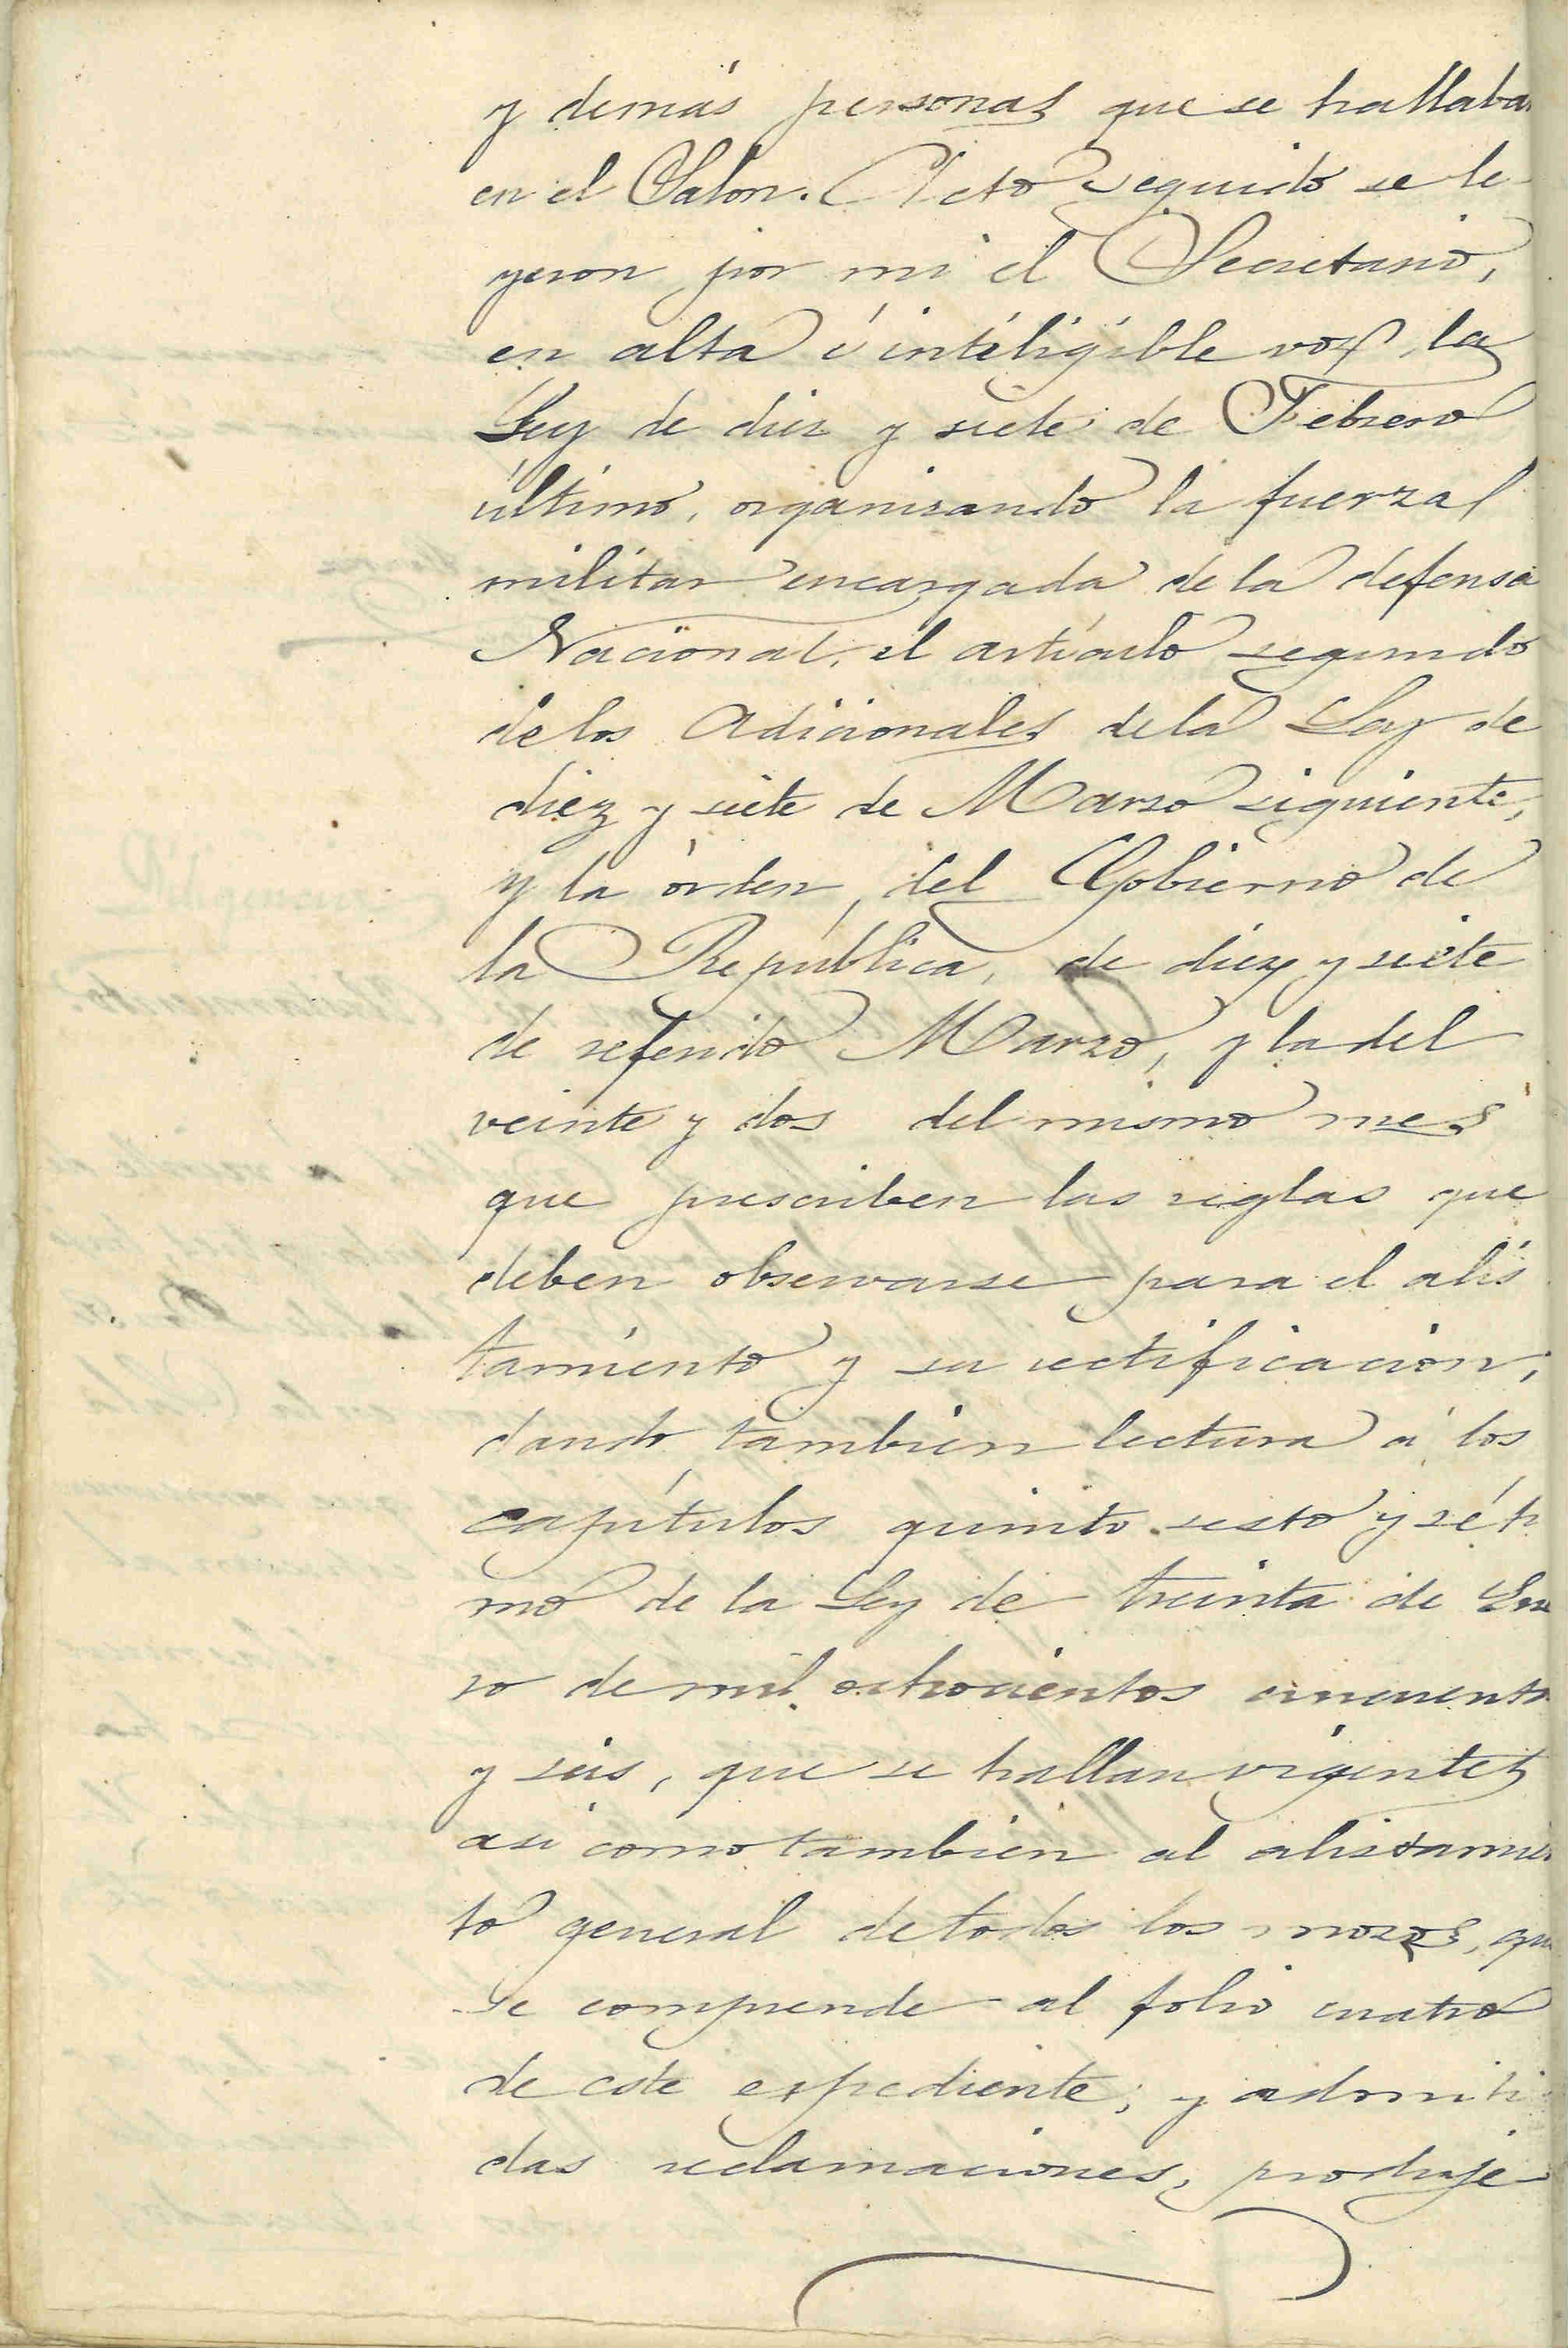 y demás personas que se hallaban
en el Salon. Acto seguido se le-
yeron por mi el Secretario,
en alta é inteligible voz, la
Ley de diez y siete de Febrero
último, organizando la fuerza
militar encargada de la defensa
Nacional, el artículo segundo
de los Adicionales de la Ley de
diez y siete de Marzo siguiente,
y la órden, del Gobierno de
la República, de diez y siete
de referido Marzo, y la del
veinte y dos del mismo mes
que prescriben las reglas que
deben observarse para el alis
tamiento y su rectificacion;
dando, tambien lectura á los
capítulos quinto sesto y séti
mo de la Ley de treinta de Ene
ro de mil ochocientos cincuenta
y seis, que se hallan vigentes
asi como tambien al alistamien
to general de todos los mozos, que
se comprende al folio cuatro
de este espediente; y admiti
das reclamaciones, produje-